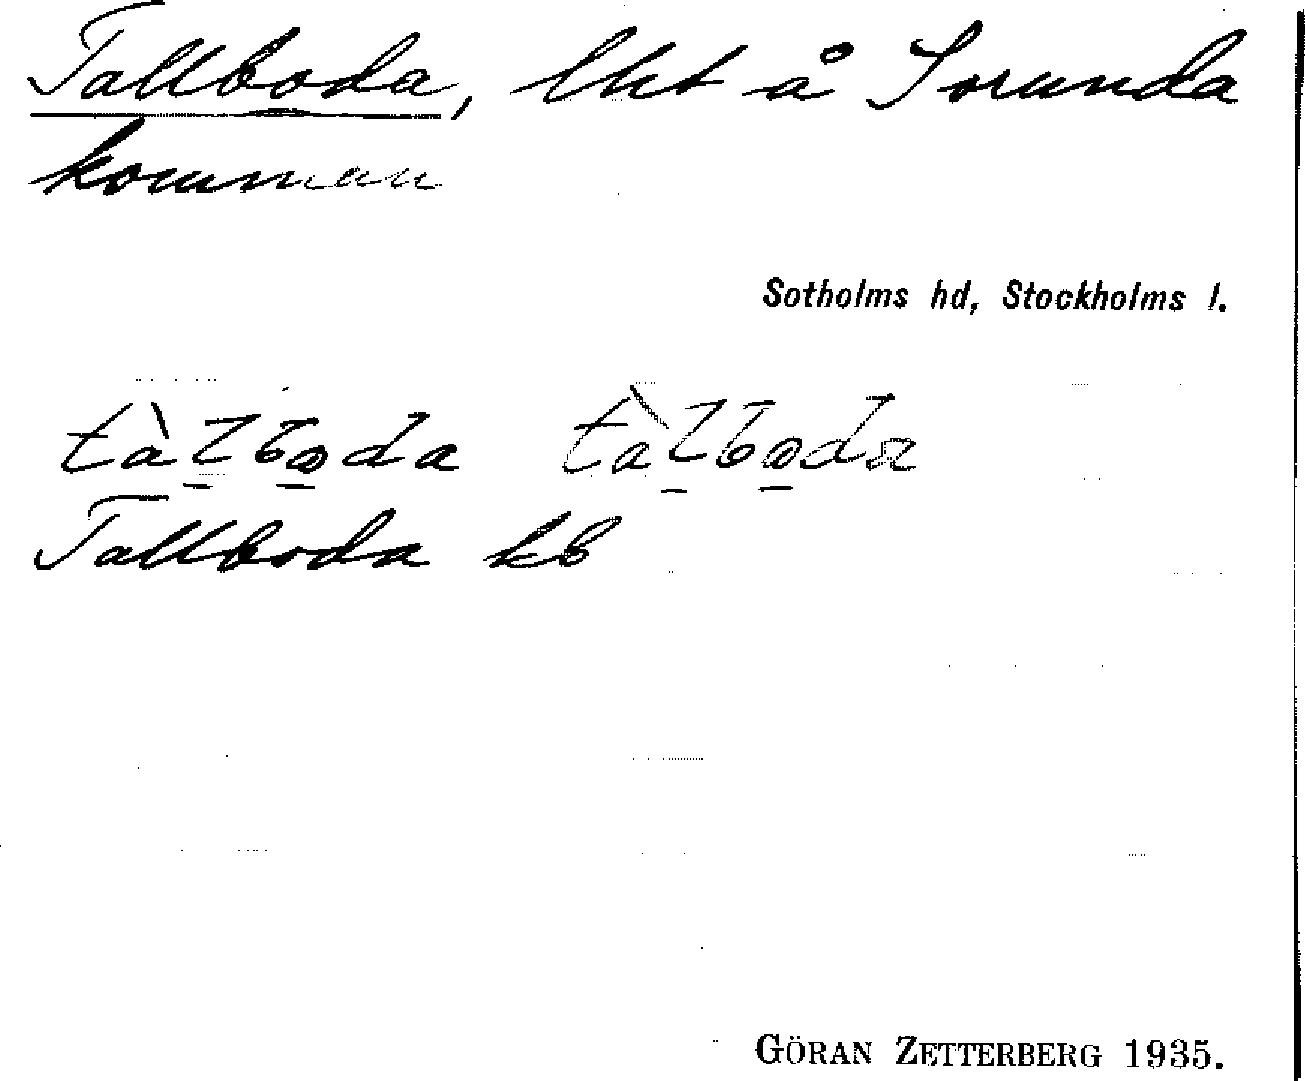 Tallboda, lht å Sorunda
kommun
Sotholms hd, Stockholms l.
tàlboda tàlboda
Tallboda kb
GÖRAN ZETTERBERG 1935.